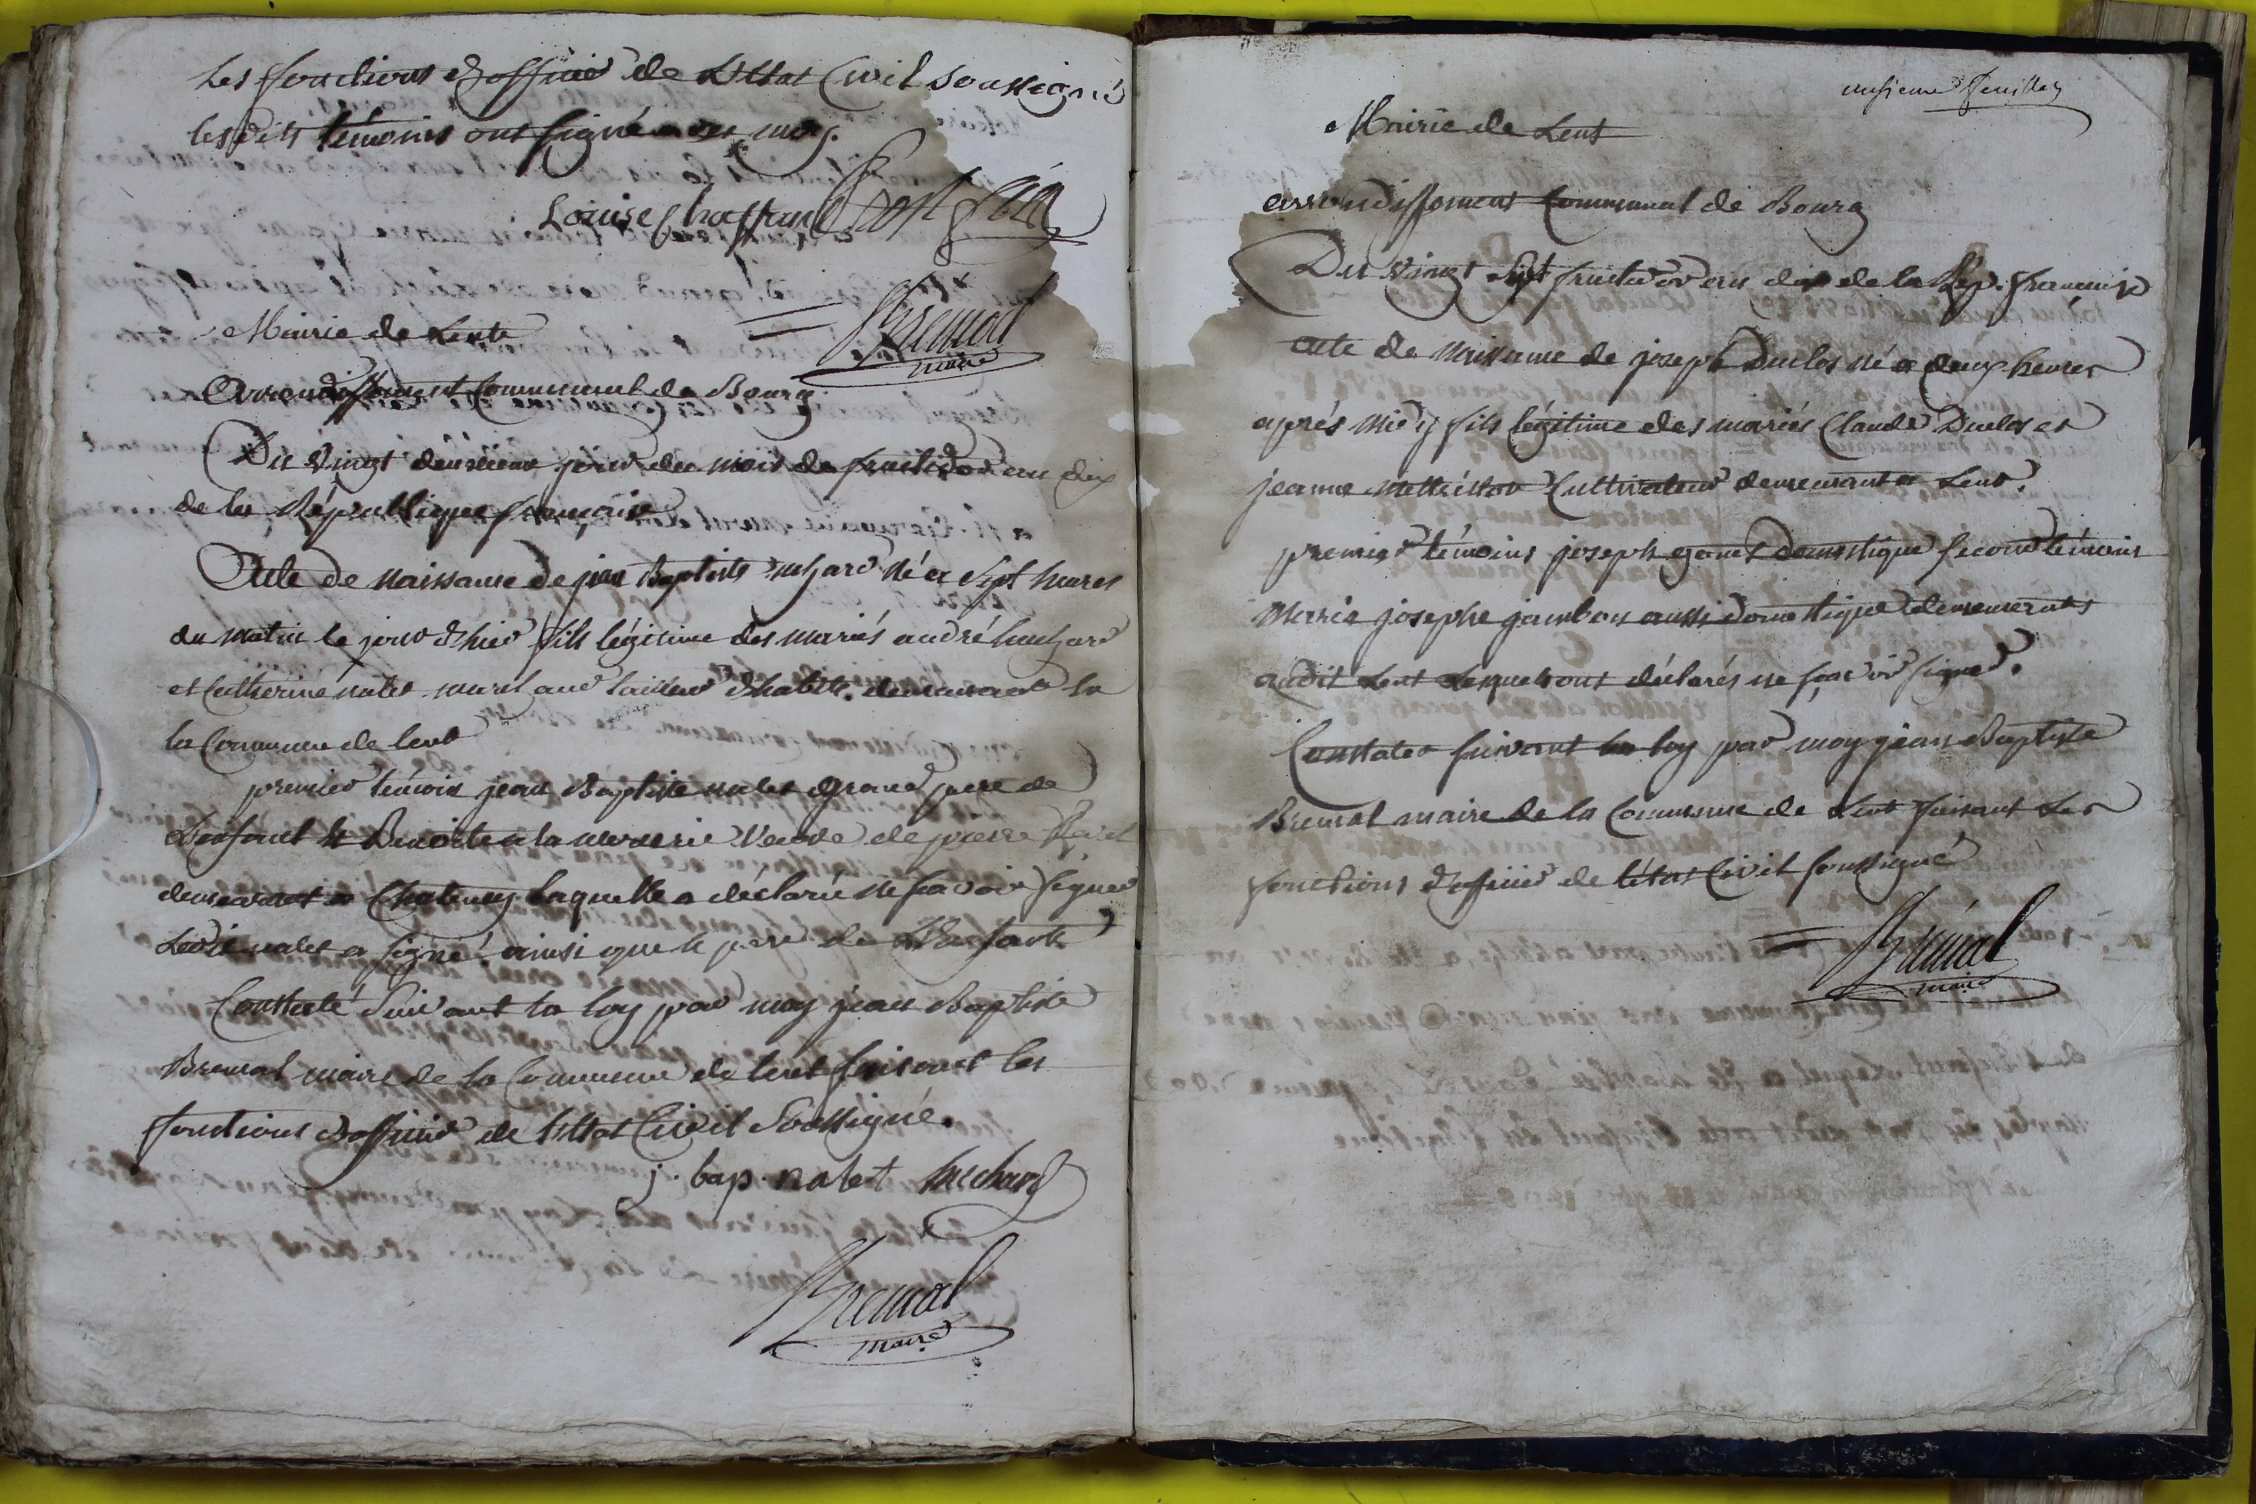 les fonctions d'officier de l'Etat Civil soussigné
les dits témoins ont signé avec moy.
Louise Chaffran
Bremal
maire
Mairie de Lent
Arrondissement Communal de Bourg
Du vingt deuxieme jour du mois de fructidor an dix
de la République française
Acte de naissance de jean Baptiste né a sept heures
du matin le jour d'hier fils légitime des mariés andré huchard
et Catherine nalet tailleur d'habits demeurant
la Commune de lent
premier témoin jean Baptiste nalet grand pere de
L'enfant veuve de pierre
demeurant a Chatenay laquelle a déclaré ne savoir signer
Ledit nalet a signé ainsi que le pere de L'Enfant
Constaté Suivant la loy par moy jean Baptiste
Bremal maire de la Commune de lent faisant les
fonctions d'officier de l'Etat Civil Soussigné.
j. bap. nalet huchard
Bremal
maire
feuillet
Mairie de Lent
arrondissement Communal de Bourg
Du vingt Sept fructidor an dix de la Rép. française
acte de naissance de joseph Duclos né a deux heures
après midy fils légitime des mariés Claude Duclos et
jeanne Cultivateur demeurant a Lent.
premier témoins joseph domestique second témoin
Marie josephe jambon aussi domestique demeurants
audit Lent Lesquels ont déclarés ne sçavoir signer.
Constater suivant la loy par moy jean Baptiste
Bremal maire de la Commune de Lent faisant Les
fonctions d'officier de l'état Civil soussigné
Bremal
maire